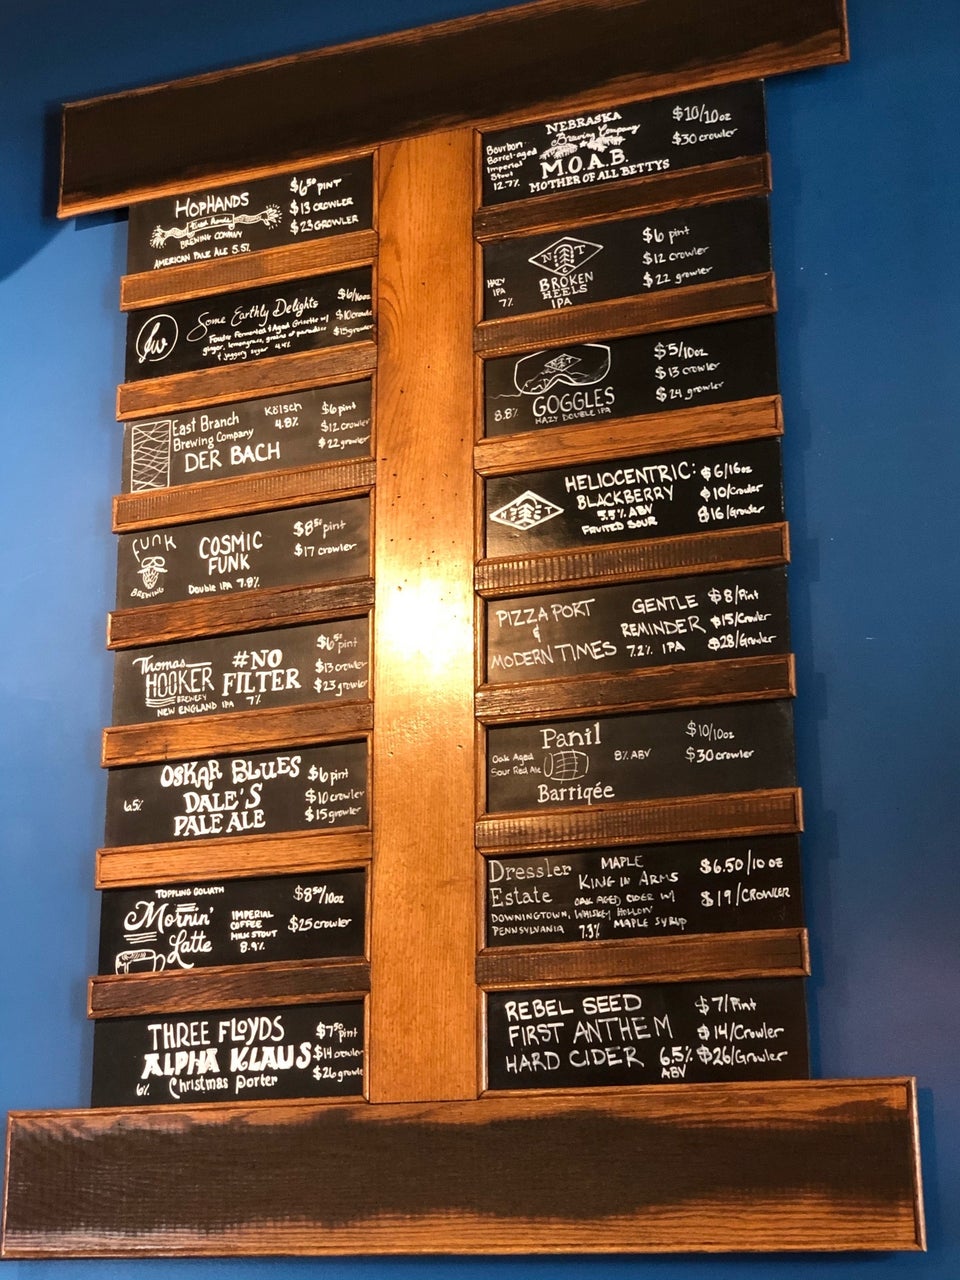 HOPHANDS
Tired Hands
BREWING COMPANY
AMERICAN PALE ALE 5.5%
$6⁵⁰ PINT
$13 CROWLER
$23 GROWLER
Some Earthly Delights
Foeder Fermented & Aged Grisette w/
ginger, lemongrass, grains of paradise
& jaggery sugar 4.4%
$6/16oz
$10 crowle
$15 growler
East Branch
Brewing Company
DER BACH
Kölsch
4.8%
$6 pint
$12 crowler
$22 growler
FUNK
BREWING
COSMIC
FUNK
Double IPA 7.8%
$8⁵⁰ pint
$17 crowler
Thomas
HOOKER
BREWERY
#NO
FILTER
NEW ENGLAND IPA 7%
$6⁵⁰ pint
$13 crowler
$23 growler
6.5%
OSKAR BLUES
DALE'S
PALE ALE
$6 pint
$10 crowler
$15 growler
TOPPLING GOLIATH
Mornin'
Latte
IMPERIAL
COFFEE
MILK STOUT
8.9%
$8⁵⁰/10oz
$25 crowler
THREE FLOYDS
ALPHA KLAUS
6% Christmas Porter
$7⁵⁰ pint
$14 crowler
$26 growle
Bourbon
Barrel-aged
Imperial
Stout
12.7%
NEBRASKA
Brewing Company
M.O.A.B.
MOTHER OF ALL BETTYS
$10/10oz
$30 crowler
HAZY
IPA
7%
BROKEN
HEELS
IPA
$6 pint
$12 crowler
$22 growler
8.8%
GOGGLES
HAZY DOUBLE IPA
$5/10oz
$13 crowler
$24 growler
HELIOCENTRIC:
BLACKBERRY
5.5% ABV
FRUITED SOUR
$6/16oz
$10/Crowler
$16/Growler
PIZZA PORT
&
MODERN TIMES
GENTLE
REMINDER
7.2% IPA
$8/Pint
$15/Crowler
$28/Growler
Panil
Oak Aged
Sour Red Ale
8% ABV
Barriqée
$10/10oz
$30 crowler
Dressler
Estate
DOWNINGTOWN,
PENNSYLVANIA
MAPLE
KING IN ARMS
OAK AGED CIDER W/
WHISKEY HOLLOW
7.3% MAPLE SYRUP
$6.50/10 OZ
$19/CROWLER
REBEL SEED
FIRST ANTHEM
HARD CIDER 6.5%
ABV
$7/Pint
$14/Crowler
$26/Growler